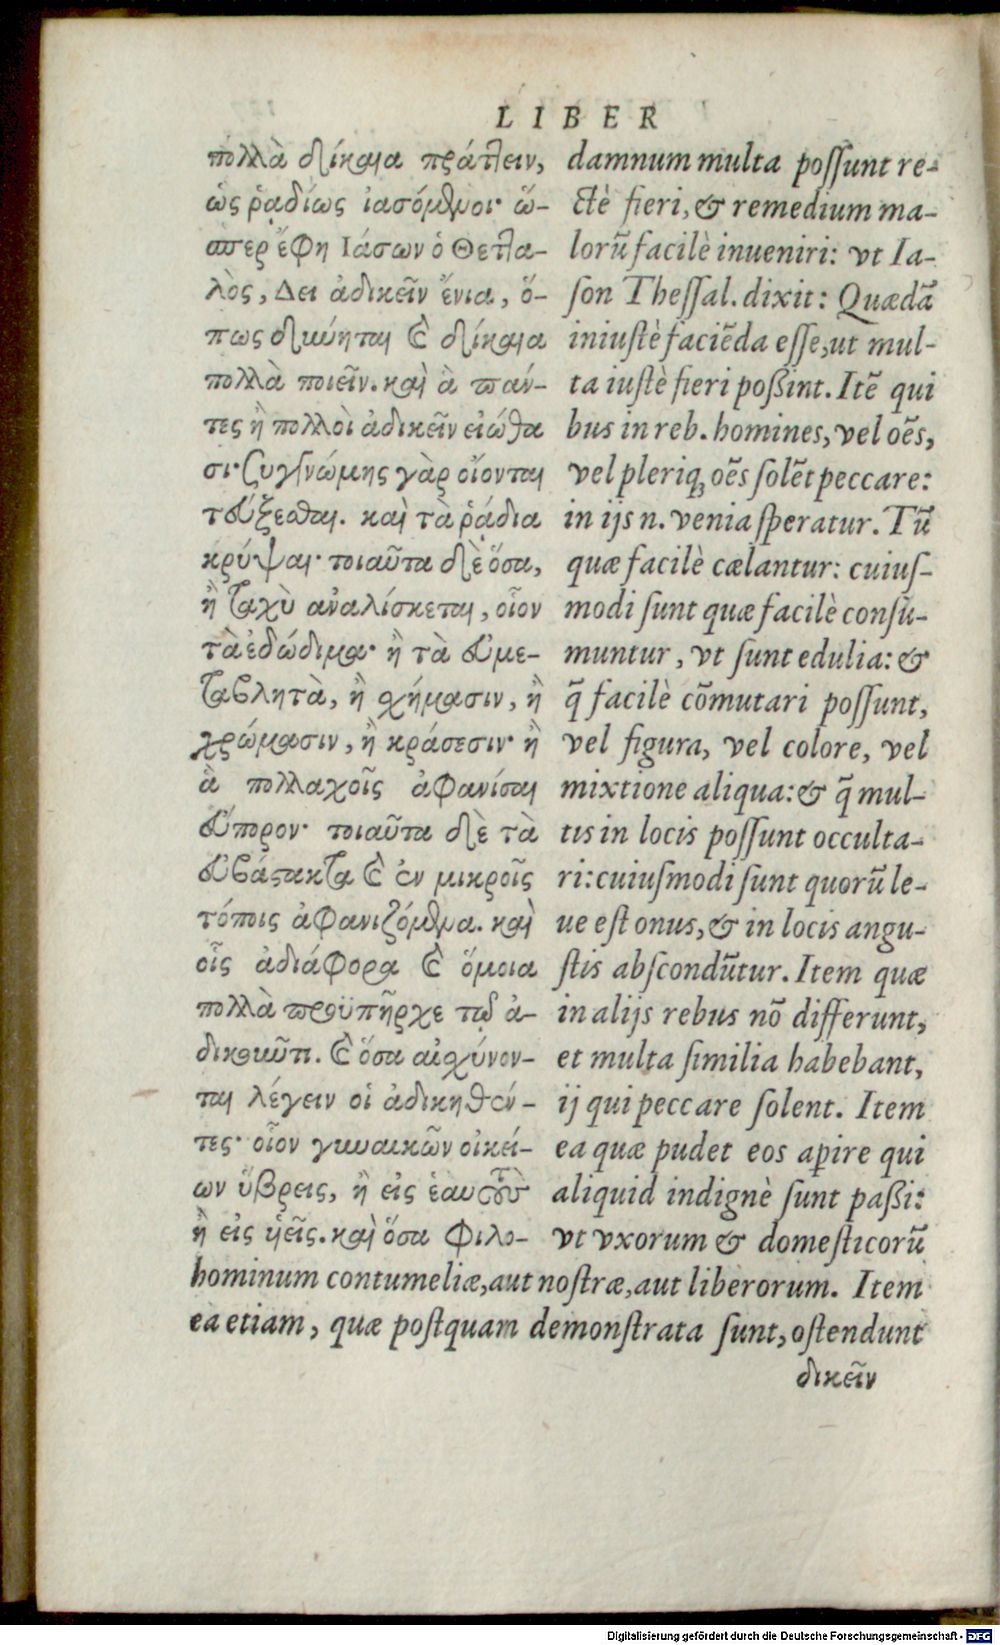 LIBER
πολλὰ δίκαια πράττειν,
ὡς ῥᾳδίως ἰασόμενοι· ὥ-
σπερ ἔφη Ἰάσων ὁ Θεττα-
λὸς, Δει ἀδικεῖν ἔνια, ὅ-
πως δύνηται καὶ δίκαια
πολλὰ ποιεῖν. καὶ ἃ πάν-
τες ἢ πολλοὶ ἀδικεῖν εἰώθα
σι· συγγνώμης γὰρ οἴονται
τεύξεσθαι. καὶ τὰ ῥάδια
κρύψαι· τοιαῦτα δὲ ὅσα,
ἢ ταχὺ ἀναλίσκεται, οἷον
τὰ ἐδώδιμα· ἢ τὰ εὐμε-
ταβλητὰ, ἢ σχήμασιν, ἢ
χρώμασιν, ἢ κράσεσιν· ἢ
ἃ πολλαχοῖς ἀφανίσαι
εὔπορον· τοιαῦτα δὲ τὰ
εὐβάστακτα καὶ ἐν μικροῖς
τόποις ἀφανιζόμενα. καὶ
οἷς ἀδιάφορα καὶ ὅμοια
πολλὰ προϋπῆρχε τῷ ἀ-
δικοῦντι. καὶ ὅσα αἰσχύνον-
ται λέγειν οἱ ἀδικηθέν-
τες· οἷον γυναικῶν οἰκεί-
ων ὕβρεις, ἢ εἰς ἑαυτοὺς
ἢ εἰς υἱεῖς. καὶ ὅσα φιλο-
damnum multa possunt re-
ctè fieri, & remedium ma-
lorũ facilè inueniri: vt Ia-
son Thessal. dixit: Quædã
iniustè faciẽda esse, ut mul-
ta iustè fieri poßint. Itẽ qui
bus in reb. homines, vel oẽs,
vel pleriq; oẽs solẽt peccare:
in ijs n. venia speratur. Tũ
quæ facilè cælantur: cuius-
modi sunt quæ facilè consu-
muntur, vt sunt edulia: &
q̃ facilè cõmutari possunt,
vel figura, vel colore, vel
mixtione aliqua: & q̃ mul-
tis in locis possunt occulta-
ri: cuiusmodi sunt quorũ le-
ue est onus, & in locis angu-
stis abscondũtur. Item quæ
in alijs rebus nõ differunt,
et multa similia habebant,
ij qui peccare solent. Item
ea quæ pudet eos aꝑire qui
aliquid indignè sunt paßi:
vt vxorum & domesticorũ
hominum contumeliæ, aut nostræ, aut liberorum. Item
ea etiam, quæ postquam demonstrata sunt, ostendunt
δικεῖν
Digitalisierung gefördert durch die Deutsche Forschungsgemeinschaft - DFG